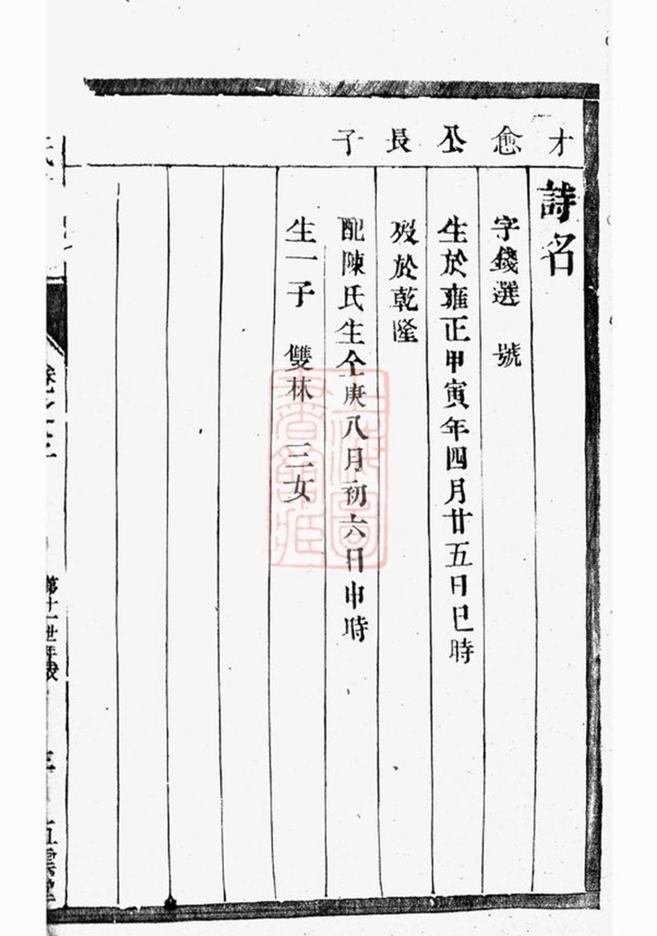 才愈公長子
詩名
字錢選 號
生於雍正甲寅年四月廿五日巳時
歿於乾隆
配陳氏生仝庚八月初六日申時
生一子 雙林 三女
卷之三
第十一世年表
五雲堂